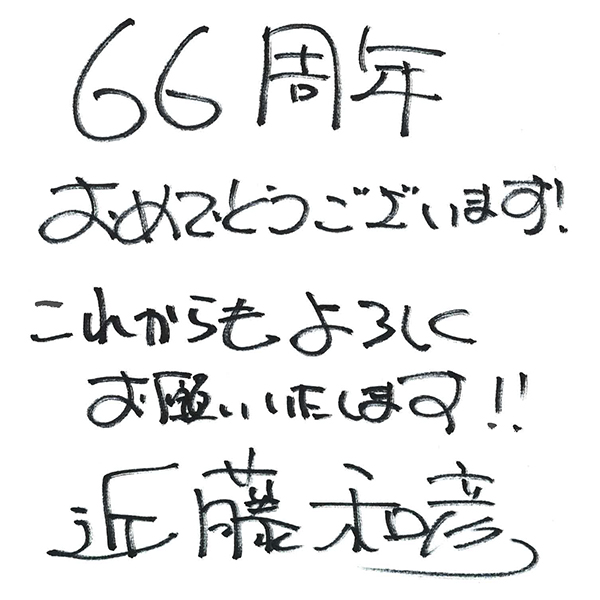 66周年
おめでとうございます!
これからもよろしく
お願いいたします!!
近藤和彦